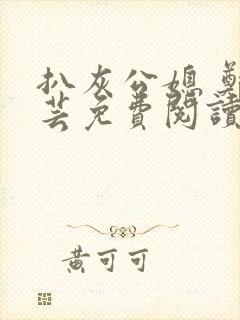 扒灰公媳
芸免費閱讀
黃可可